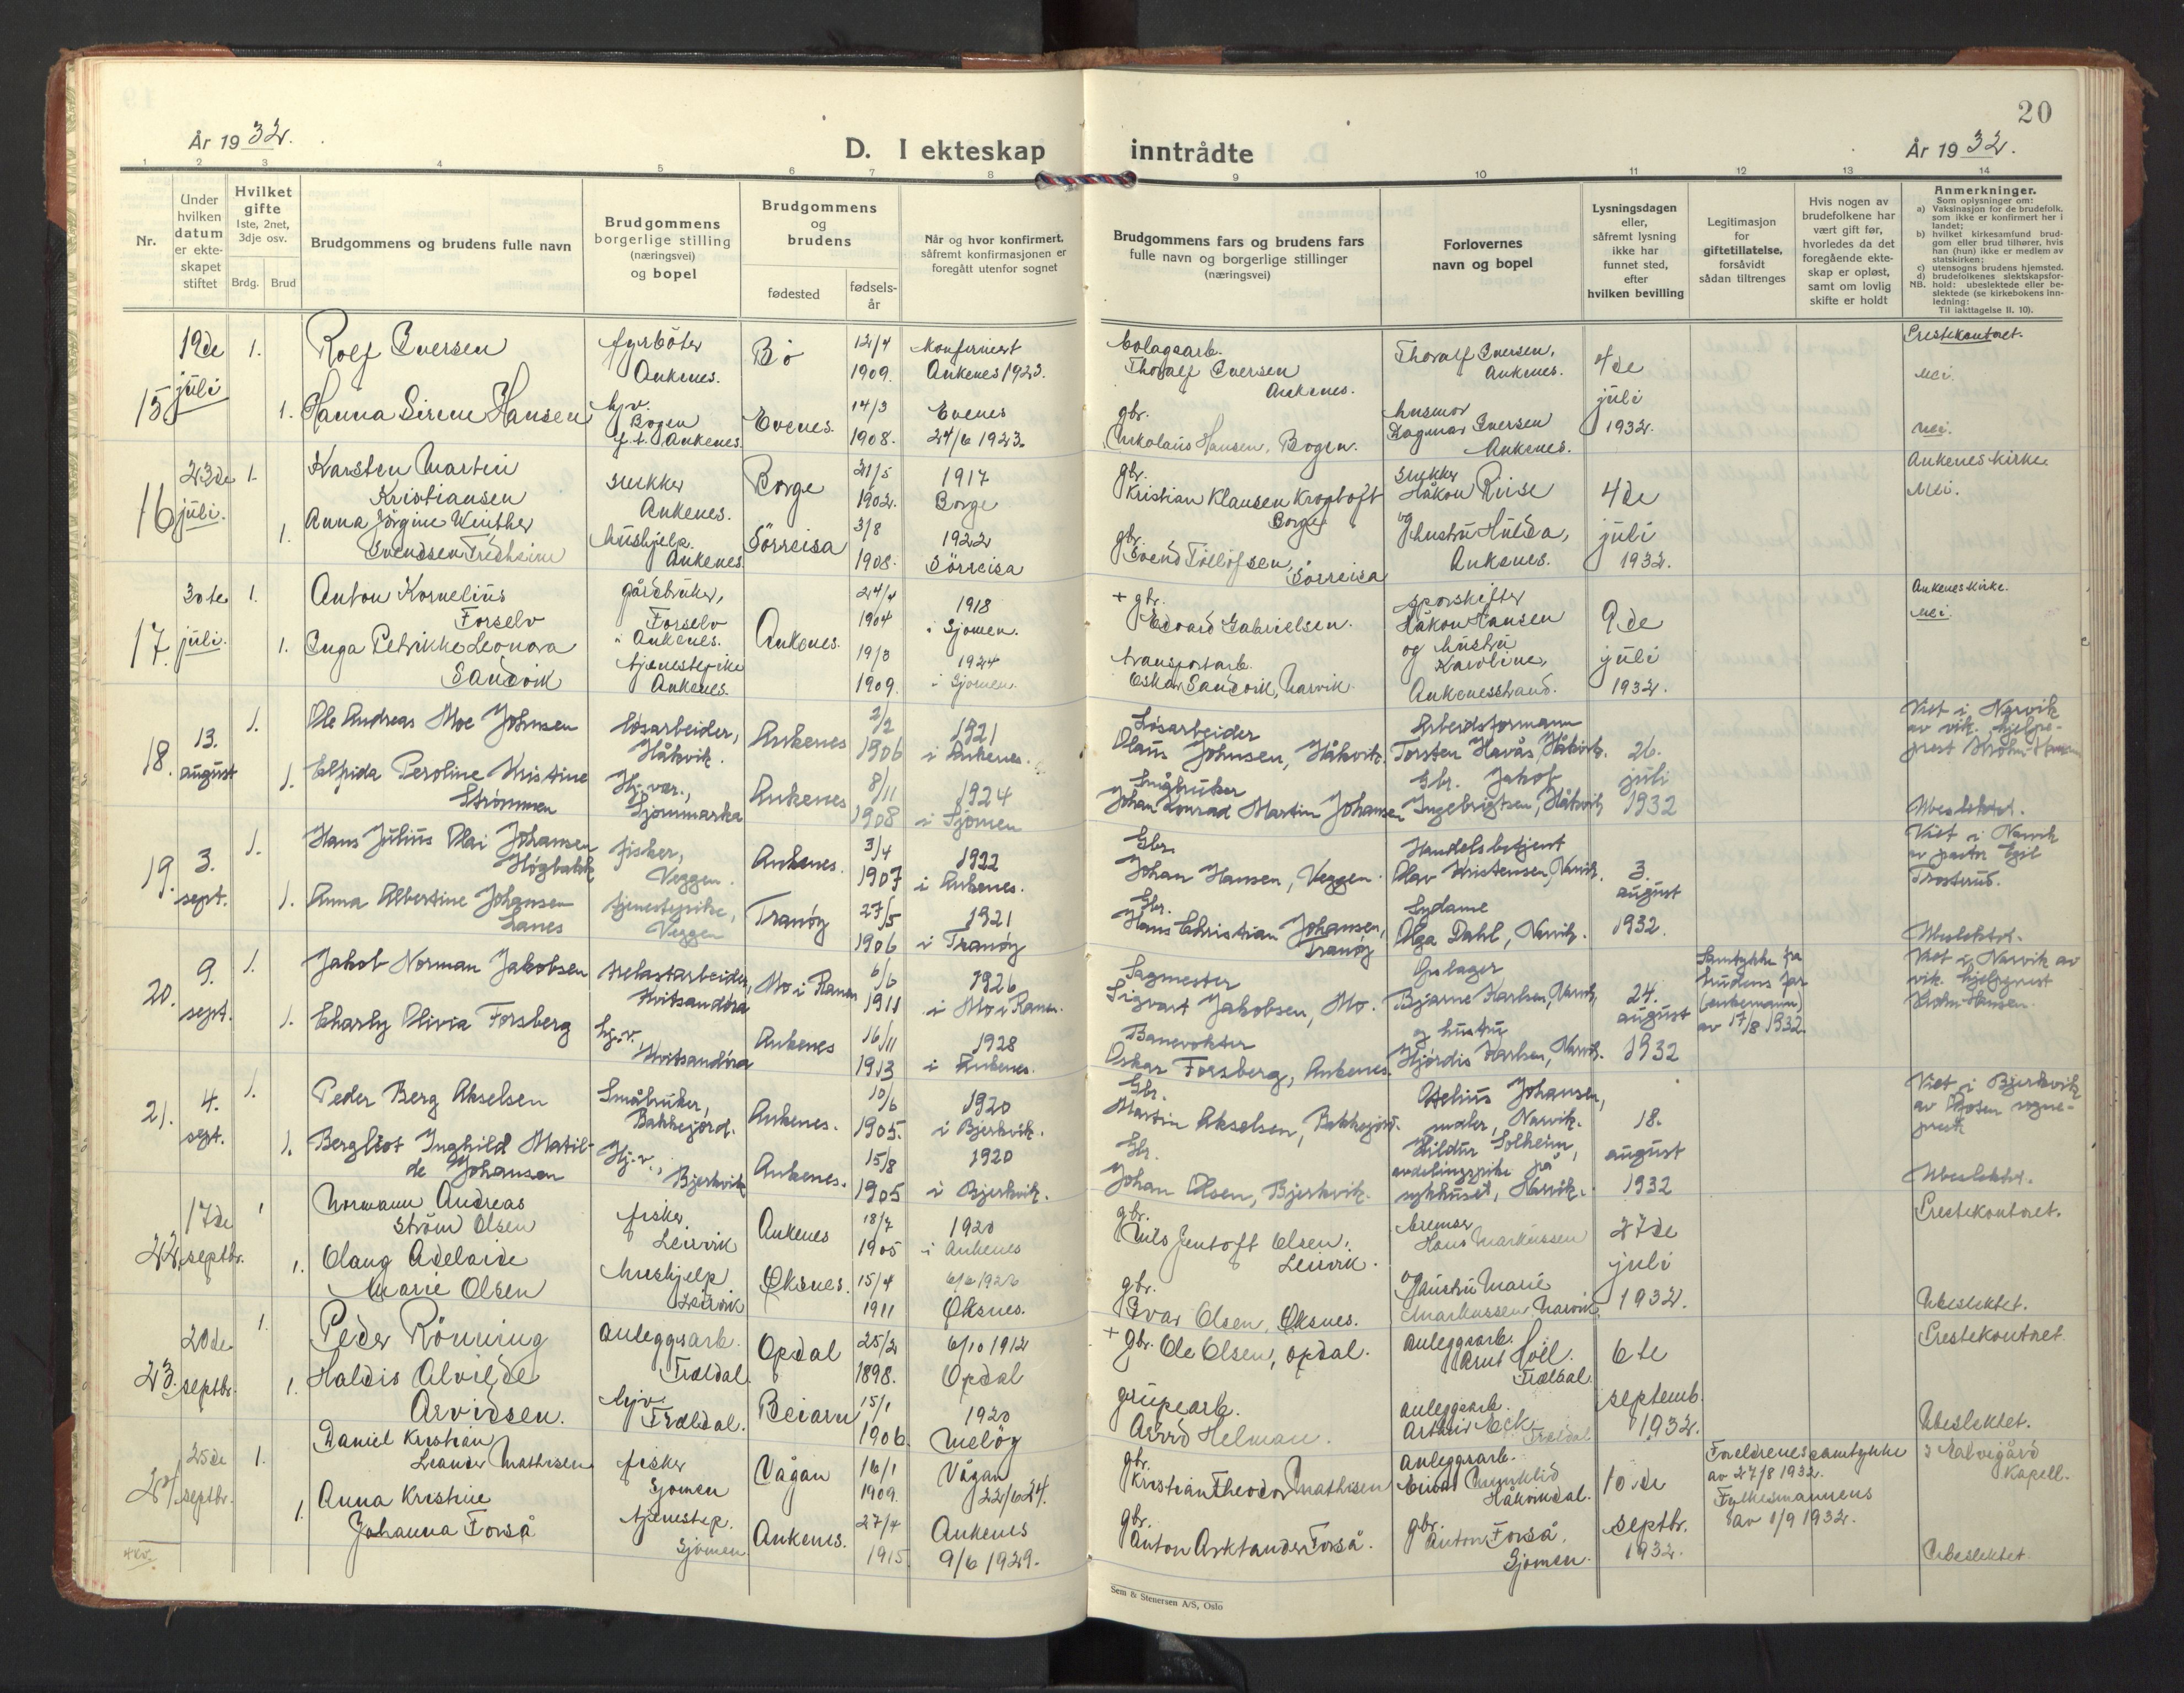 20
År 1932.
D. I ekteskap inntrådte
År 1932.
1 2 3 4 5 6 7 8 9 10 11 12 13 14
Nr.
Under hvilken datum er ekte-skapet stiftet
Hvilket gifte
1ste, 2net, 3dje osv.
Brdg. Brud
Brudgommens og brudens fulle navn
Brudgommens borgerlige stilling (næringsvei) og bopel
Brudgommens og brudens
fødested
fødsels-år
Når og hvor konfirmert, såfremt konfirmasjonen er foregått utenfor sognet
Brudgommens fars og brudens fars fulle navn og borgerlige stillinger (næringsvei)
Forlovernes navn og bopel
Lysningsdagen eller, såfremt lysning ikke har funnet sted, efter hvilken bevilling
Legitimasjon for giftetillatelse, forsåvidt sådan tiltrenges
Hvis nogen av brudefolkene har vært gift før, hvorledes da det foregående ekte-skap er opløst, samt om lovlig skifte er holdt
Anmerkninger.
Som oplysninger om:
a) Vaksinasjon for de brudefolk, som ikke er konfirmert her i landet;
b) hvilket kirkesamfund brud-gom eller brud tilhører, hvis han (hun) ikke er medlem av statskirken;
c) utensogns brudens hjemsted.
d) brudefolkenes slektskapsfor-hold: ubeslektede eller be-slektede (se kirkebokens inn-ledning:
NB.
Til iakttagelse II. 10).
15 19de juli 1. Rolf Iversen fyrböter Ankenes. Bö 12/4 1909. Konfirmert Ankenes 1923. Thoralf Iversen Ankenes. Thoralf Iversen, Ankenes. 4de juli 1932. Prestekontoret. nei.
1. Hanna Sirene Hansen hjv. Bogen f.t. Ankenes. Evenes. 14/3 1908. Evenes 24/6 1923. gbr. Nikolaus Hansen, Bogen. husmor Dagmar Iversen Ankenes. nei.
16 23de juli. 1. Karsten Martin Kristiansen snekker Ankenes. Borge 21/5 1902. 1917 Borge gbr. Kristian Klausen Borge. snekker Håkon Ruise og hustru Hulda, Ankenes. 4de juli 1932. Ankenes kirke. nei.
1. Anna Jörgine Winther Svendsen hushjelp. Ankenes. Sörreisa 3/8 1908. 1922 Sörreisa gbr. Svend Tollofsen, Sörreisa
17. 30te juli. 1. Anton Kornelius Forselv gårdbruker, Forselv i Ankenes. Ankenes. 24/4 1904 1918 i Sjomen. + gbr. Edvard Gabrielsen. sporskifter Håkon Hansen og hustru Karoline, Ankenesstrand. 9de juli 1932. Ankenes kirke. nei.
1. Inga Petrikke Leonora Sandvik tjenestepike Ankenes. 19/3 1909. 1924 i Sjomen. transportarb. Oskar Sandvik, Narvik.
18. 13. august 1. Ole Andreas Moe Johnsen lösarbeider, Håkvik. Ankenes 2/2 1906 1921 i Ankenes. Lösarbeider Olaus Johnsen, Håkvik. Arbeidsformann Torsten Havås, Håkvik. 26. juli 1932 Viet i Narvik av vik. hjelpe-prest
1. Elfrida Peroline Kristine Strømmen Hj. vær., Sjommarka Ankenes 8/11 1908 1924 i Sjomen Småbruker Johan Konrad Martin Johansen Gbr. Jakob Ingebrigtsen, Håkvik Ubeslektet.
19. 3. sept. 1. Hans Julius Olai Johansen Høgbakk fisker, Veggen. Ankenes. 3/4 1907 1922 i Ankenes. Gbr. Johan Hansen, Veggen. Handelsbetjent Olav Kristensen, Narvik. 3. august 1932. Viet i Narvik av pastor Egil Trosterud.
1. Anna Albertine Johansen Lanes tjenestepike, Veggen Tranöy 27/5 1906 1921 i Tranöy Gbr. Hans Christian Johansen, Tranöy Sydame Olga Dahl, Narvik. Ubeslektet.
20. 9. sept. 1. Jakob Norman Jakobsen Kvitsandöra Mo i Ranen 6/6 1911 1926 i Mo i Ranen. Sagmester Sigvart Jakobsen, Mo. Bjarne Karlsen, Narvik, og hustru Hjördis Karlsen, Narvik. 24. august 1932 Samtykke fra brudens far av 17/8 1932. Viet i Narvik av vik. hjelpeprest
1. Charly Olivia Forsberg hj.v. Kvitsandöra Ankenes 16/11 1913 1928 i Ankenes. Banevokter Oskar Forsberg, Ankenes.
21. 4. sept. 1. Peder Berg Akselsen Småbruker, Bakkejord. Ankenes. 10/6 1905. 1920 i Bjerkvik. Gbr. Martin Akselsen, Bakkejord. Johansen, maler, Narvik. 18. august 1932 Viet i Bjerkvik av sogne-prest
1. Bergliot Inghild Matil-de Johansen Hj.v., Bjerkvik Ankenes. 15/8 1905 1920 i Bjerkvik. Gbr. Johan Olsen, Bjerkvik. Hildur Solheim, avdelingspike på sykehuset, Narvik. Ubeslektet.
22. 17de septbr. 1 Normann Andreas Ström Olsen fisker Leirvik Ankenes 18/7 1905 1920 i Ankenes gbr. Nils Jentoft Olsen. Leirvik. bremser Hans Markussen og hustru Marie Markussen Narvik. 27de juli 1932. Prestekontoret.
1. Olaug Adelaide Marie Olsen hushjelp Leirvik Øksnes. 15/4 1911 6/6 1926 Øksnes. gbr. Ivar Olsen, Øksnes. Ubeslektet.
23. 20de septbr. 1. Peder Rönning anleggsarb. Trældal Opdal 25/2 1898. 6/10 1912 Opdal + gbr. Ole Olsen, Opdal. anleggsarb. Arnt Hoel. Trældal. 6te septemb. 1932. Prestekontoret
1. Haldis Alvilde Arvidsen. hjv. Trældal. Beiarn 15/1 1906. 1920 Melöy grubearb. Arvid Helman. anleggsarb. Arthur Eck Trældal Ubeslektet.
24 25de septbr. 1. Daniel Kristian Leander Mathisen fisker Sjomen Vågan 16/1 1909. Vågan 22/6 24. gbr. Kristian Theodor Mathisen anleggsarb. Håkvikdal. 10.de septbr. 1932. Foreldrenes samtykke av 27/8 1932. Fylkesmannens av 1/9 1932. Kapell.
1. Anna Kristine Johanna Forså tjenestep. Sjomen Ankenes. 27/4 1915. Ankenes 9/6 1929. gbr. Anton Arktander Forså. gbr. Anton Forså. Sjomen. Ubeslektet.
Sem & Stenersen A/S, Oslo